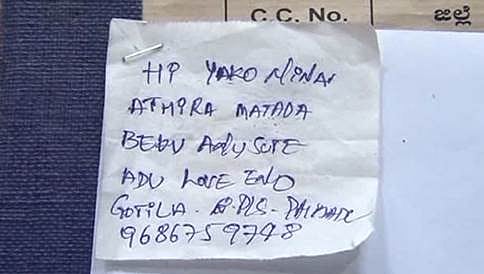 C.C. No. ಜಿಲ್ಲೆ
HI YAKO NINAN
ATHIRA MATADA
BEKU ADU SUTE
ADU LOVE ENO
GOTILA. PLS-
9686759748